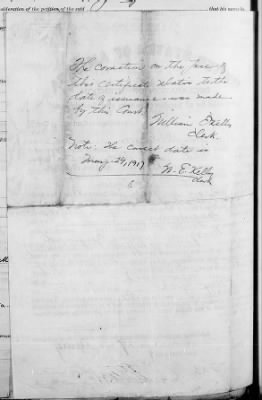 consideration of the petition of the said that his name be
The correction on the face of
this certificate relative to the
date of issuance was made
by this Court.
William E Kelly
Clerk.
Note: The correct date is
May 24, 1917
W. E. Kelly
Clerk